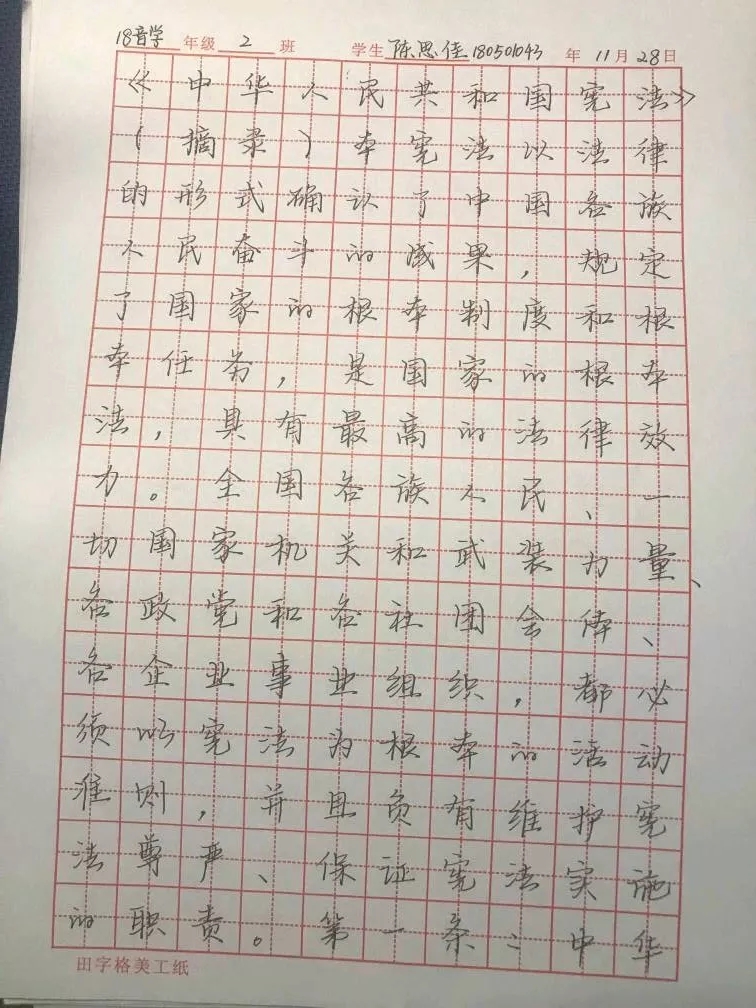 18音学 年级 2 班 学生 陈思佳180501043 年 11月28日
《中华人民共和国宪法》
（摘录）本宪法以法律
的形式确认了中国各族
人民奋斗的成果，规定
了国家的根本制度和根
本任务，是国家的根本
法，具有最高的法律效
力。全国各族人民、一
切国家机关和武装力量、
各政党和各社团会体、
各企业事业组织，都必
须以宪法为根本的活动
准则，并且负有维护宪
法尊严、保证宪法实施
的职责。第一条：中华
田字格美工纸